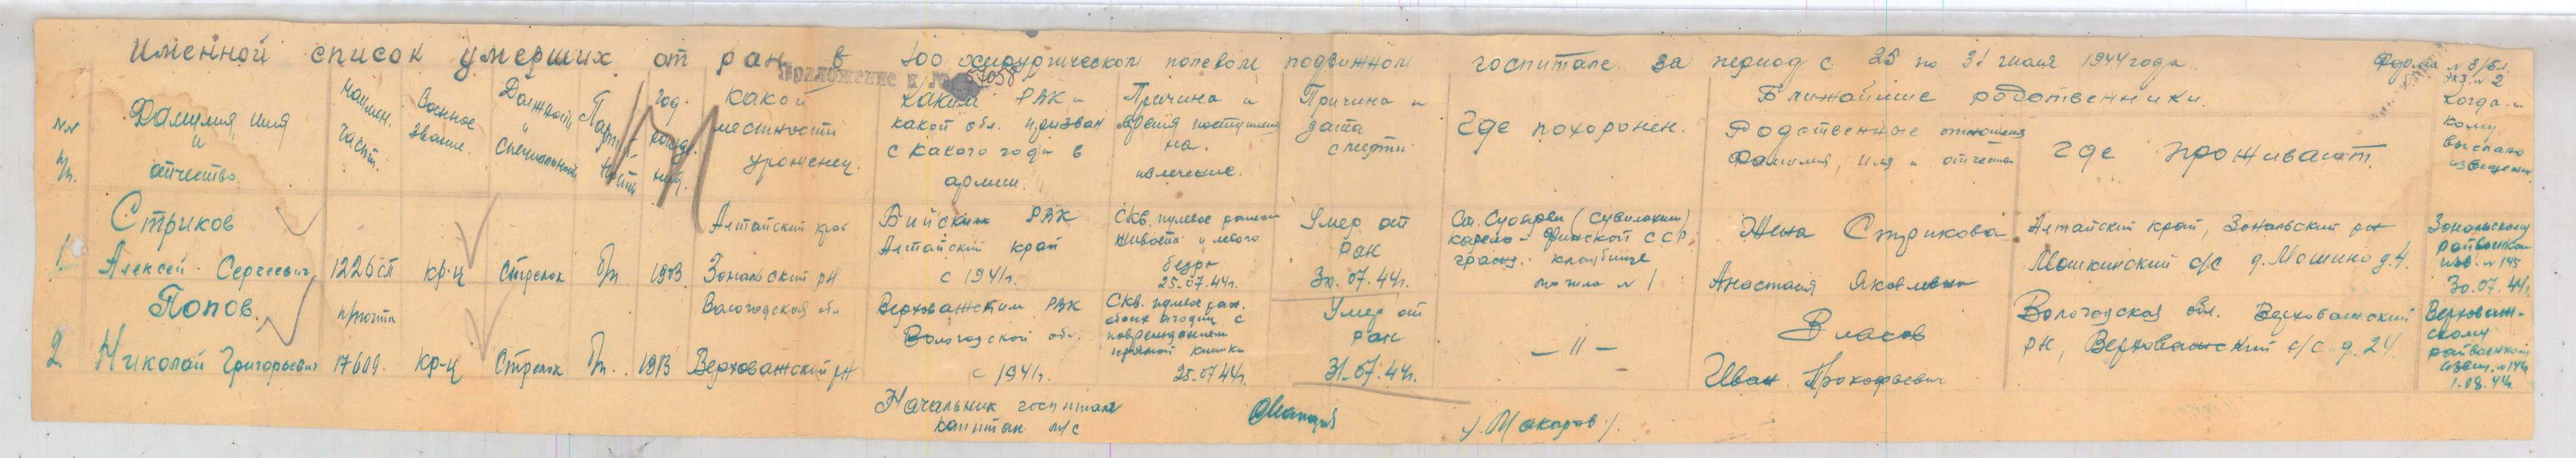 Именной список умерших от ран в 100 хирургическом полевом подвижном госпитале за период с 25 по 31 июля 1944 года.
Форма № 8/бл.
Приложение к
57058
пр. № 2
№№ п/п.
Фамилия, имя и отчество.
Наимен. части.
Военное звание.
Должность и специальность
Парт-ность
год рожде-ния.
Какой местности уроженец.
Каким РВК и какой обл. призван с какого года в армии.
Причина и время поступления на излечение.
Причина и дата смерти
Где похоронен.
Ближайшие родственники.
Родственные отношения Фамилия, имя и отчество
Где проживают.
Когда и кому выслано извещение
1
Стриков
Алексей Сергеевич,
1226 сп
кр-ц
Стрелок
б/п
1903
Алтайский край
Зональский рн
Бийским РВК
Алтайский край
с 1941г.
Скв. пулевое ранение
живота и левого
бедра
25.07.44г.
Умер от
ран
30.07.44г.
Ст. Суоярви (Сувилахти)
карело-Финской ССР
гражд. кладбище
могила № 1
Жена Стрикова
Анастасия Яковлевна
Алтайский край, Зональский рн
Мошкинский с/с д. Мошино д. 4.
Зональскому
райвоенком
изв. № 145
30.07.44г.
2
Попов.
Николай Григорьевич
п/почта
17609.
кр-ц
Стрелок
б/п.
1913
Вологодская обл
Верховажский рн
Верховажским РВК
Вологодской обл.
с 1941г.
Скв. пулевое ран.
обеих ягодиц с
повреждением
прямой кишки
25.07.44г.
Умер от
ран
31.07.44г.
— 〃 —
Власов
Иван Прокофьевич
Вологодская обл. Верховажский
рн, Верховажский с/с д. 24.
Верховаж-
скому
райвоенком
извещ. № 146
1.08.44г.
Начальник госпиталя
капитан м/с
/. Макаров /.